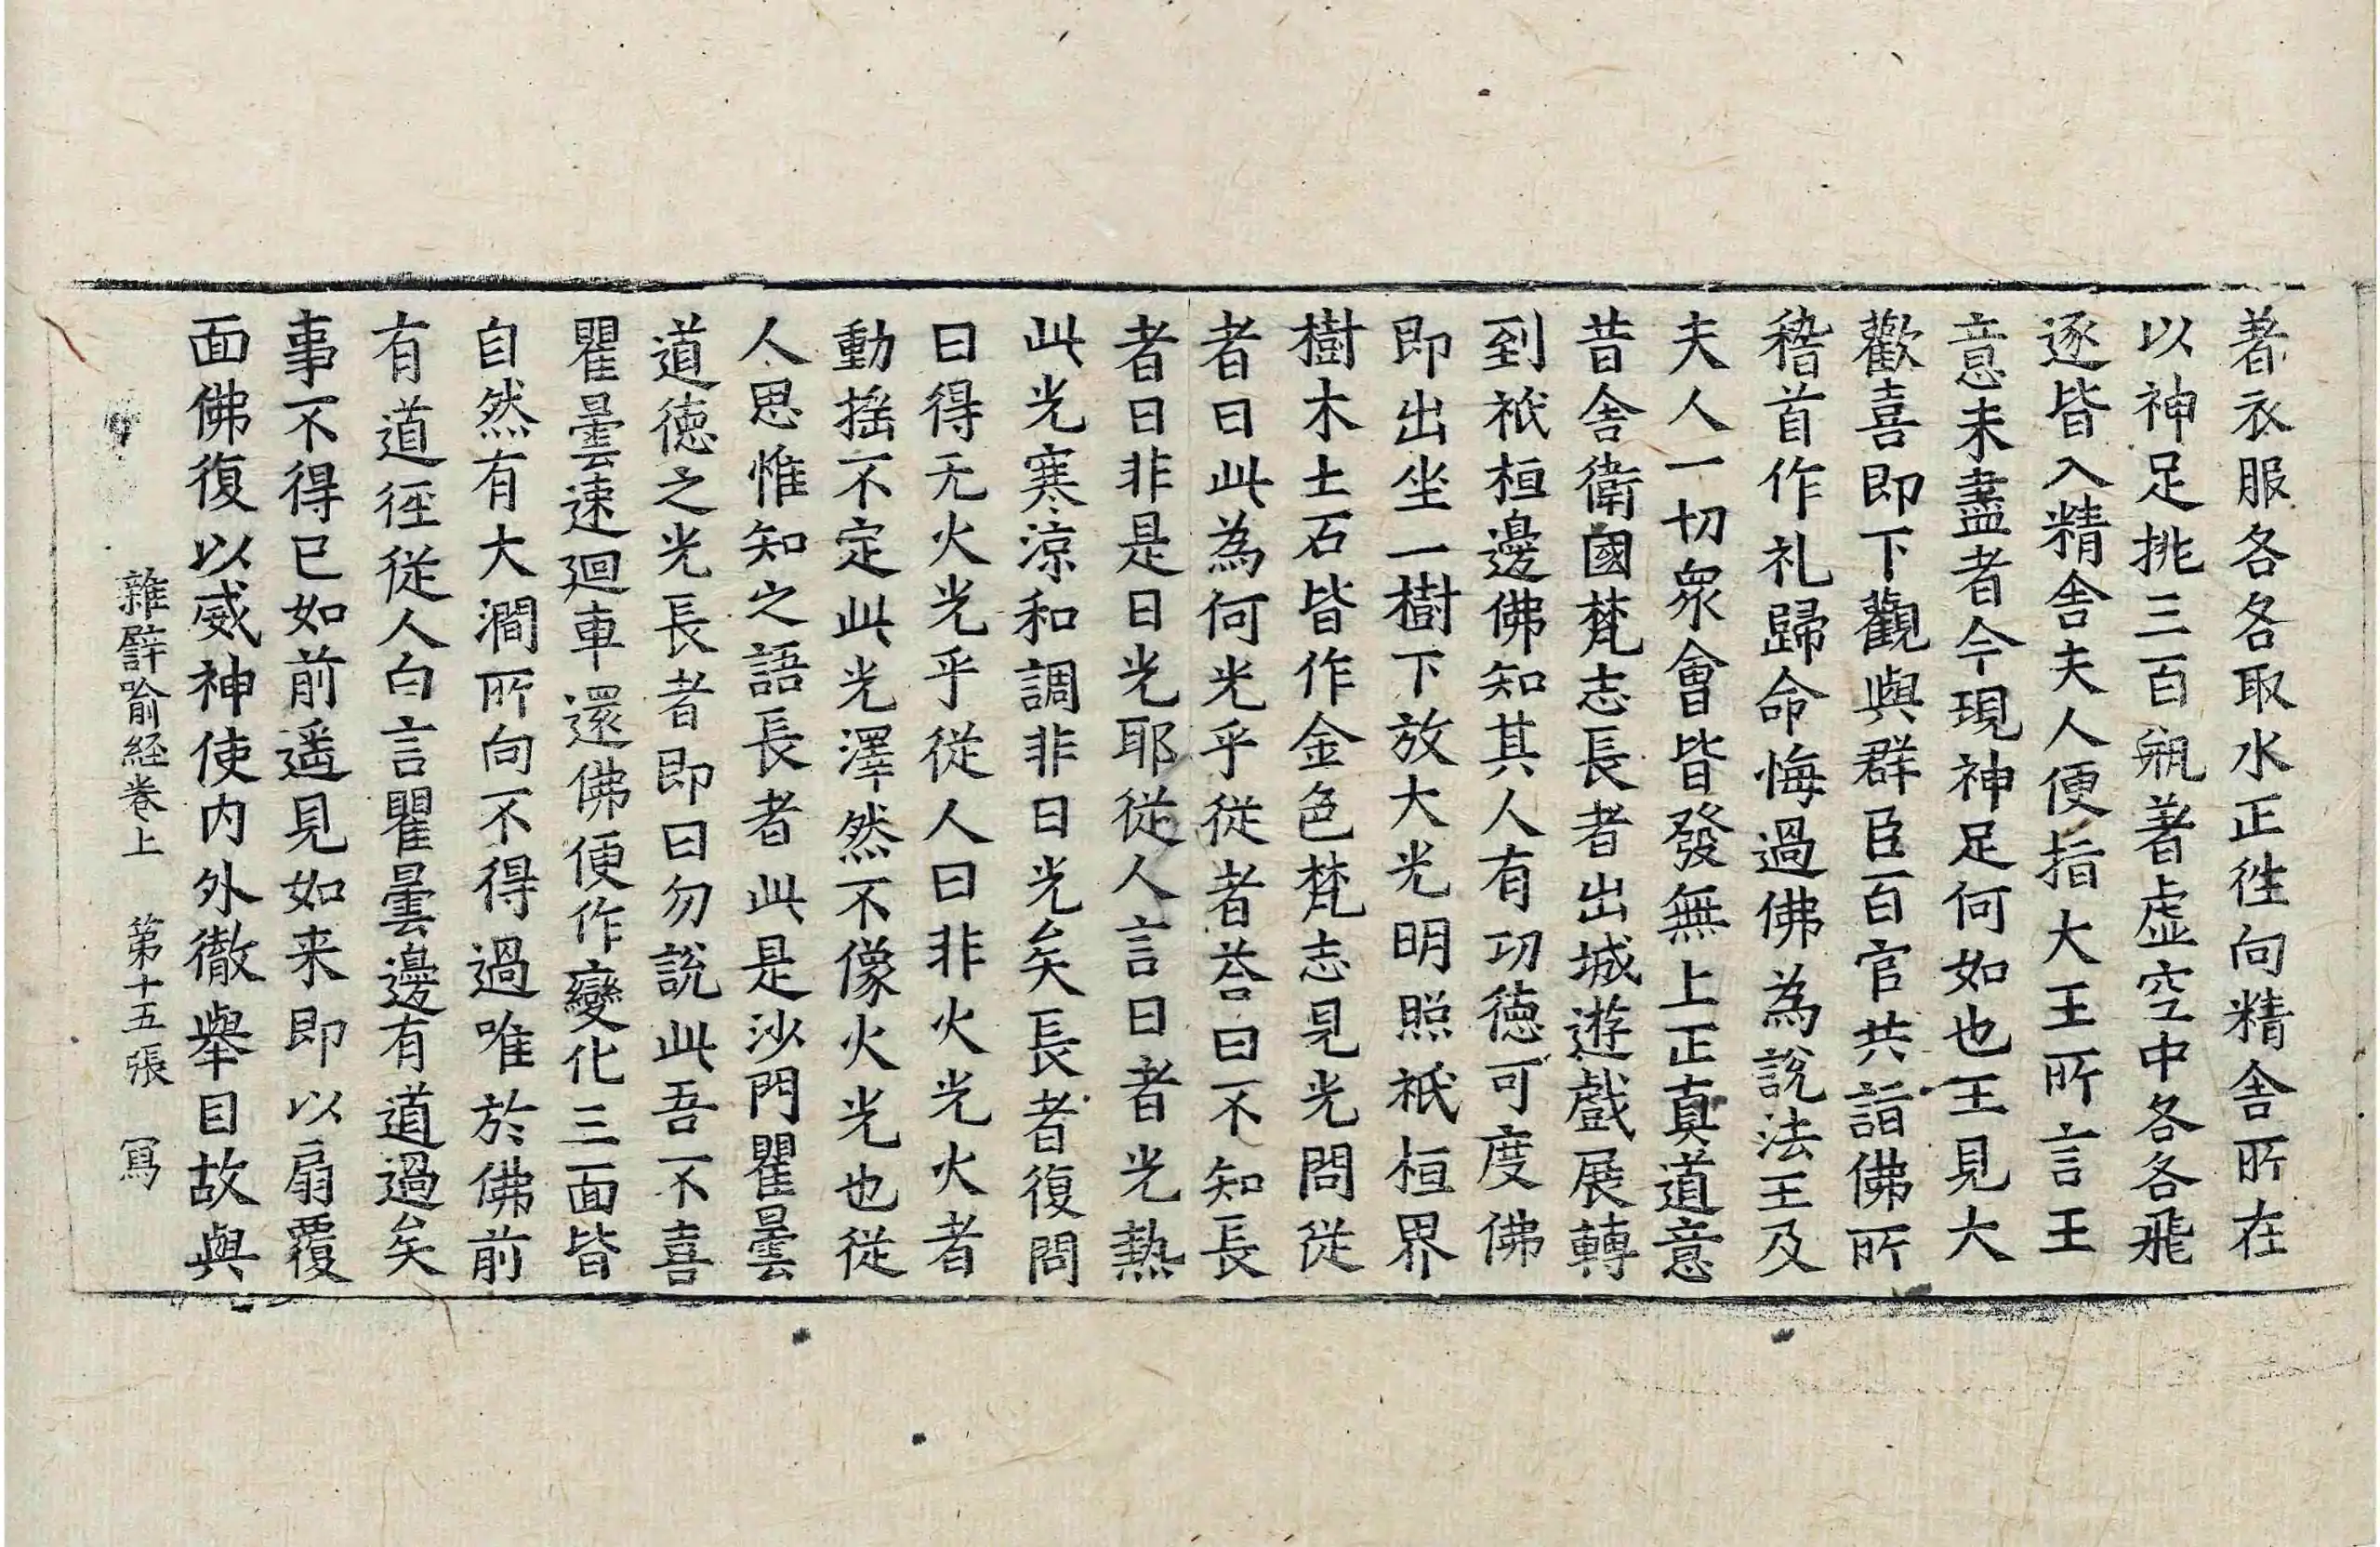 著衣服各各取水正往向精舍所在
以神足挑三百瓶著虛空中各各飛
逐皆入精舍夫人便指大王所言王
意未盡者今現神足何如也王見大
歡喜即下觀與群臣百官共詣佛所
稽首作礼歸命悔過佛為說法王及
夫人一切眾會皆發無上正真道意
昔舍衛國梵志長者出城遊戲展轉
到祇桓邊佛知其人有功德可度佛
即出坐一樹下放大光明照祇桓界
樹木土石皆作金色梵志見光問從
者曰此為何光乎從者荅曰不知長
者曰非是日光耶從人言日者光熱
此光寒涼和調非日光矣長者復問
曰得无火光乎從人曰非火光火者
動搖不定此光澤然不像火光也從
人思惟知之語長者此是沙門瞿曇
道德之光長者即曰勿說此吾不喜
瞿曇速迴車還佛便作變化三面皆
自然有大澗所向不得過唯於佛前
有道徑從人白言瞿曇邊有道過矣
事不得已如前遥見如来即以扇覆
面佛復以威神使内外徹舉目故與
雜譬喻経卷上　第十五張　寫